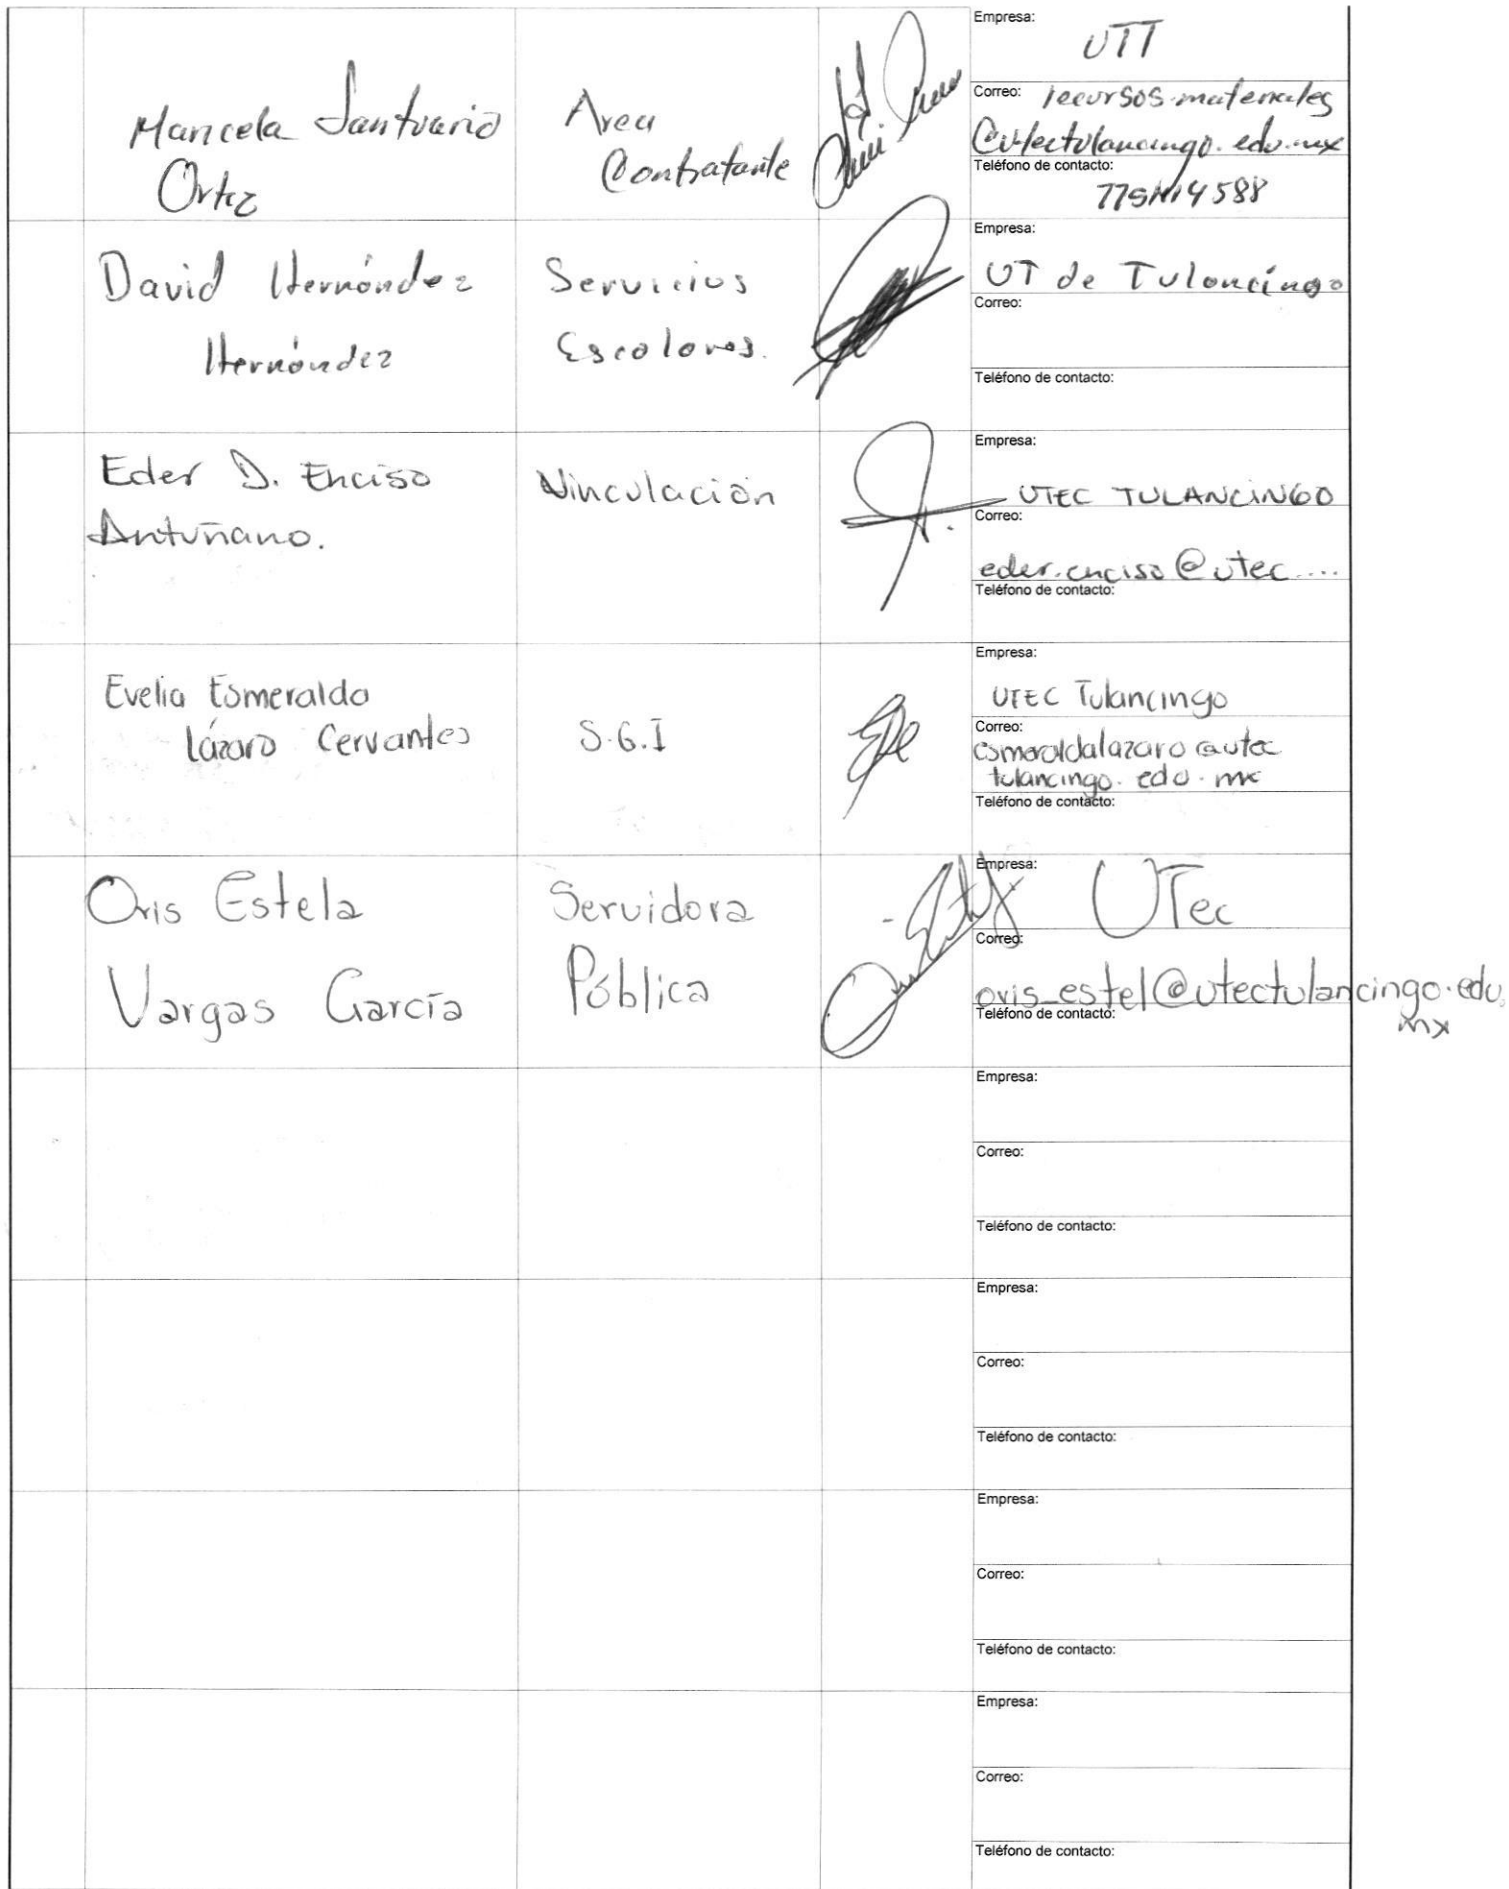 Empresa:
UTT
Marcela Santuario
Ortiz
Area
Contratante
Correo: recursos.materiales
@utectulancingo.edu.mx
Teléfono de contacto:
Empresa:
David Hernández
Hernández
Servicios
Escolares.
UT de Tulancingo
Correo:
Teléfono de contacto:
Empresa:
Eder D. Enciso
Antuñano.
Vinculación
UTEC TULANCINGO
Correo:
eder.enciso@utec....
Teléfono de contacto:
Empresa:
Evelia Esmeralda
Lázaro Cervantes
S.G.I
UTEC Tulancingo
Correo:
esmeraldalazaro@utec
tulancingo.edu.mx
Teléfono de contacto:
Empresa:
Oris Estela
Vargas García
Servidora
Pública
UTec
Correo:
oris_estel@utectulancingo.edu.
mx
Teléfono de contacto:
Empresa:
Correo:
Teléfono de contacto:
Empresa:
Correo:
Teléfono de contacto:
Empresa:
Correo:
Teléfono de contacto:
Empresa:
Correo:
Teléfono de contacto: